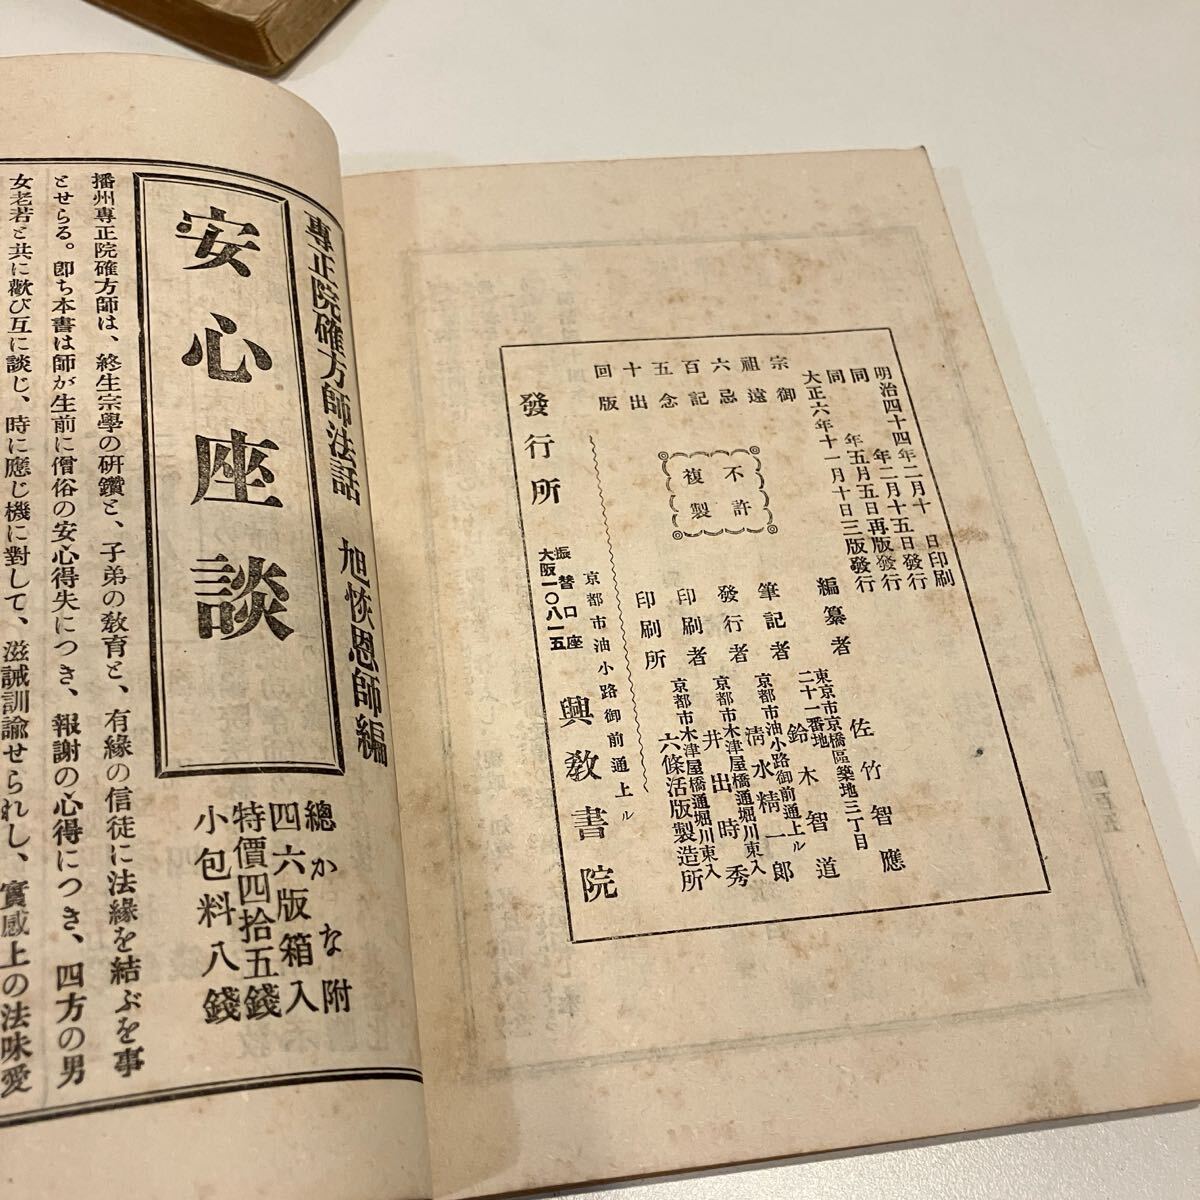 明治四十四年二月十　日印刷
同　年二月十五日發行
同　年五月五日再版發行
大正六年十一月十日三版發行
編纂者
東京市京橋區築地三丁目
二十一番地
佐竹智應
鈴木智道
筆記者
京都市油小路御前通上ル
清水精一郎
發行者
京都市木津屋橋通堀川東入
井出時秀
印刷者
京都市木津屋橋通堀川東入
印刷所
六條活版製造所
不許
複製
宗祖六百五十回
御遠忌記念出版
發行所
京都市油小路御前通上ル
興教書院
振替口座
大阪一〇八一五
專正院確方師法話　旭恢恩師編
安心座談
總かな附
四六版箱入
特價四拾五錢
小包料八錢
播州專正院確方師は、終生宗學の研鑽と、子弟の教育と、有緣の信徒に法緣を結ぶを事
とせらる。卽ち本書は師が生前に僧俗の安心得失につき、報謝の心得につき、四方の男
女老若と共に歡び互に談じ、時に應じ機に對して、滋誡訓諭せられし、實感上の法味愛